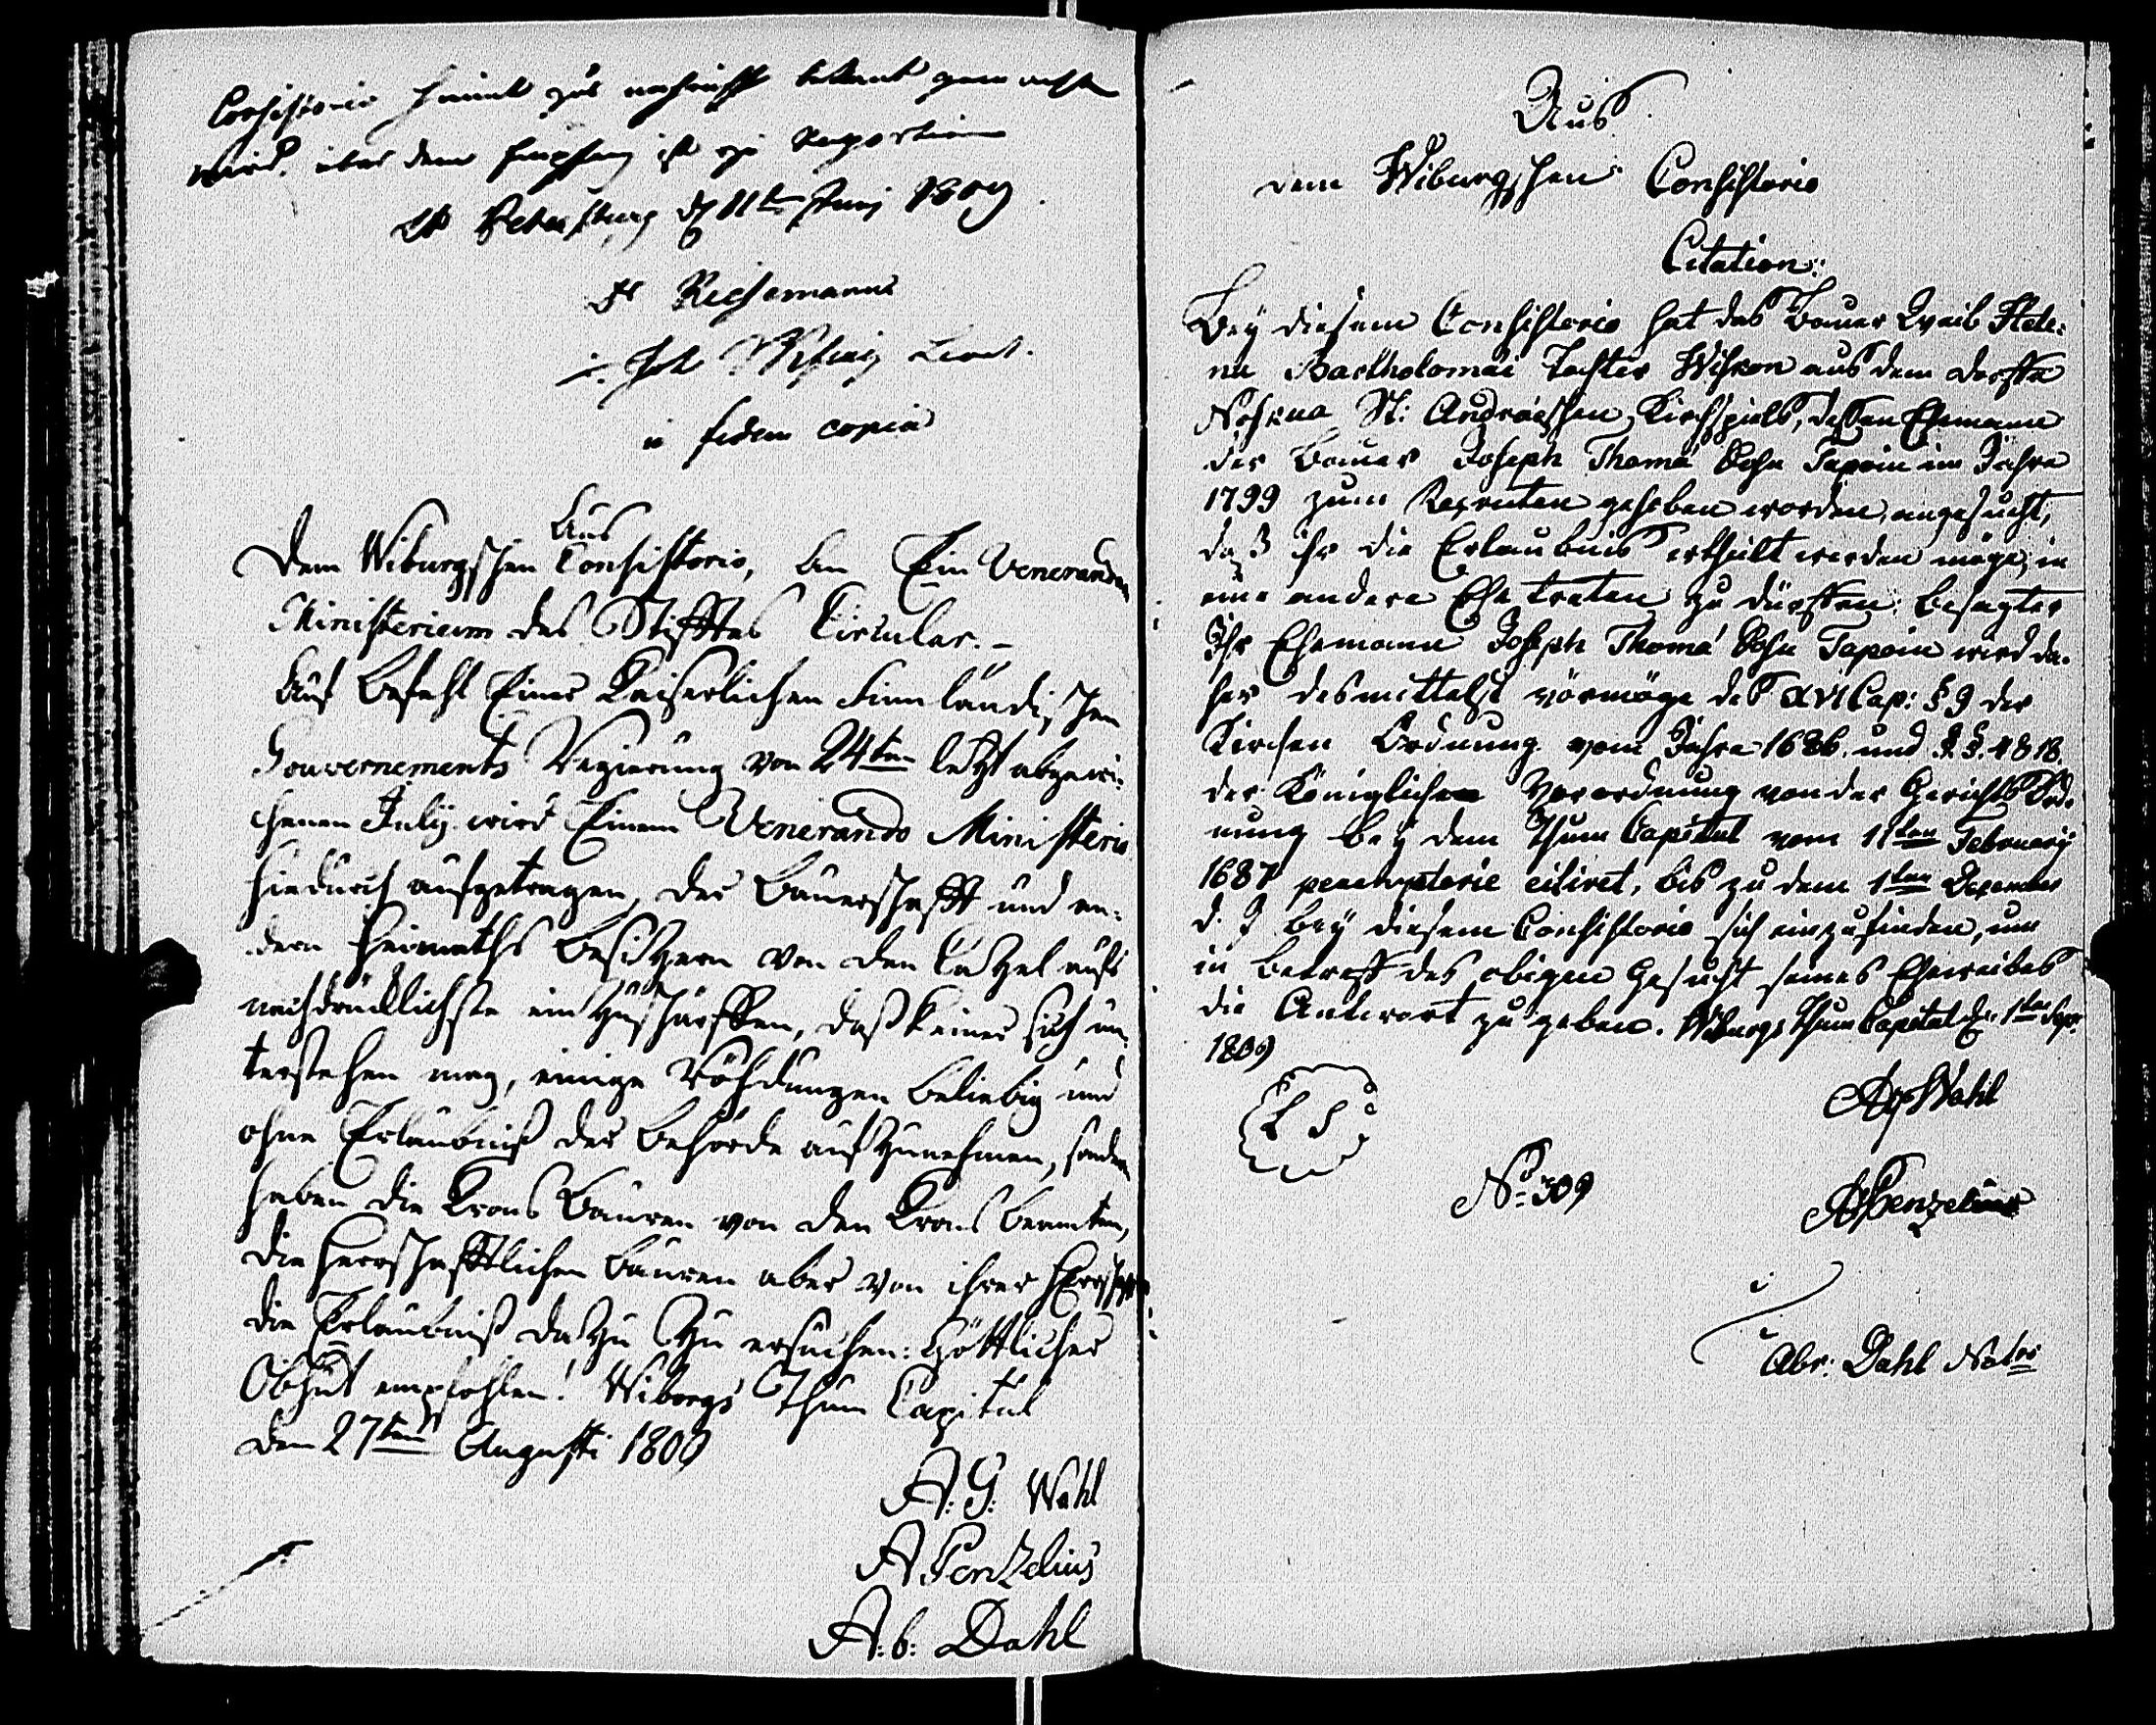 Consistorio hiemit zur nachricht bekant gemacht
wird. über dem Empfang ist zu raportiren
St Petersburg d 11ten Juny 1809
in fidem copiae
Aus
Dem Wiburgschen Consistorio, an Ein Venerandum
Ministerium des Stifftes Circular.-
Auf Befehl Einer Kaiserlichen Finnländischen
Gouvernements Regierung von 24ten letzt abgewi-
chenen July wird Einem Venerando Ministerio
hiedurch aufgetragen, der Bauerschafft und an-
dern Heimaths Besitzern von den Cantzel aufs
nachdrücklichste ein zu schärffen, daß keiner sich un-
terstehen mag, einige Röhdungen beliebig und
ohne Erlaubniß der Behörde aufzunehmen, sondern
haben die Krons Bauren von den Krons beamten,
die Herrschafftlichen Bauren aber von ihrer Herrschafft
die Erlaubniß dazu zu ersuchen: Göttlicher
Obhut empfohlen! Wiborgs Thum Capitul
den 27ten Augusti 1809
A: G: Wahl
A Penzelius
A: b: Dahl
Aus
dem Wiburgschen Consistorio
Citation:
Bey diesem Consistorio hat das Bauer Weib Hele-
na Bartholomäi Tochter Wiskon aus dem Dorffe
St: Andräeschen Kirchspiels, dessen Ehemann
der Bauer Joseph Thomä Sohn Tapoin im Jahre
1799 zum Recruten gehoben worden, angesucht,
daß ihr die Erlaubnis ertheilt werden möge, in
eine andere Ehe treten zu dürffen; besagter
Ihr Ehemann Joseph Thomä Sohn Tapoin wird da-
her desmittelst vörmöge des XVI Cap: § 9 der
Kirchen Ordnung vom Jahre 1686. und §. §. 4 & 18.
der Königlichen Verordnung von der Gerichts Ord-
nung bey dem Thum Capitul vom 11ten February
1687 peremptorie citiret, bis zu dem 1ten December
d. J bey diesem Consistorio sich einzufinden, um
in Betreff des obigen Gesucht seines Eheweibes
die Antwort zu geben. Wiburgs Thum Capitul d. 1ten Sepr.
1809
L S
Ag Wahl
No 309
A Penzelius
Abr: Dahl Notrs